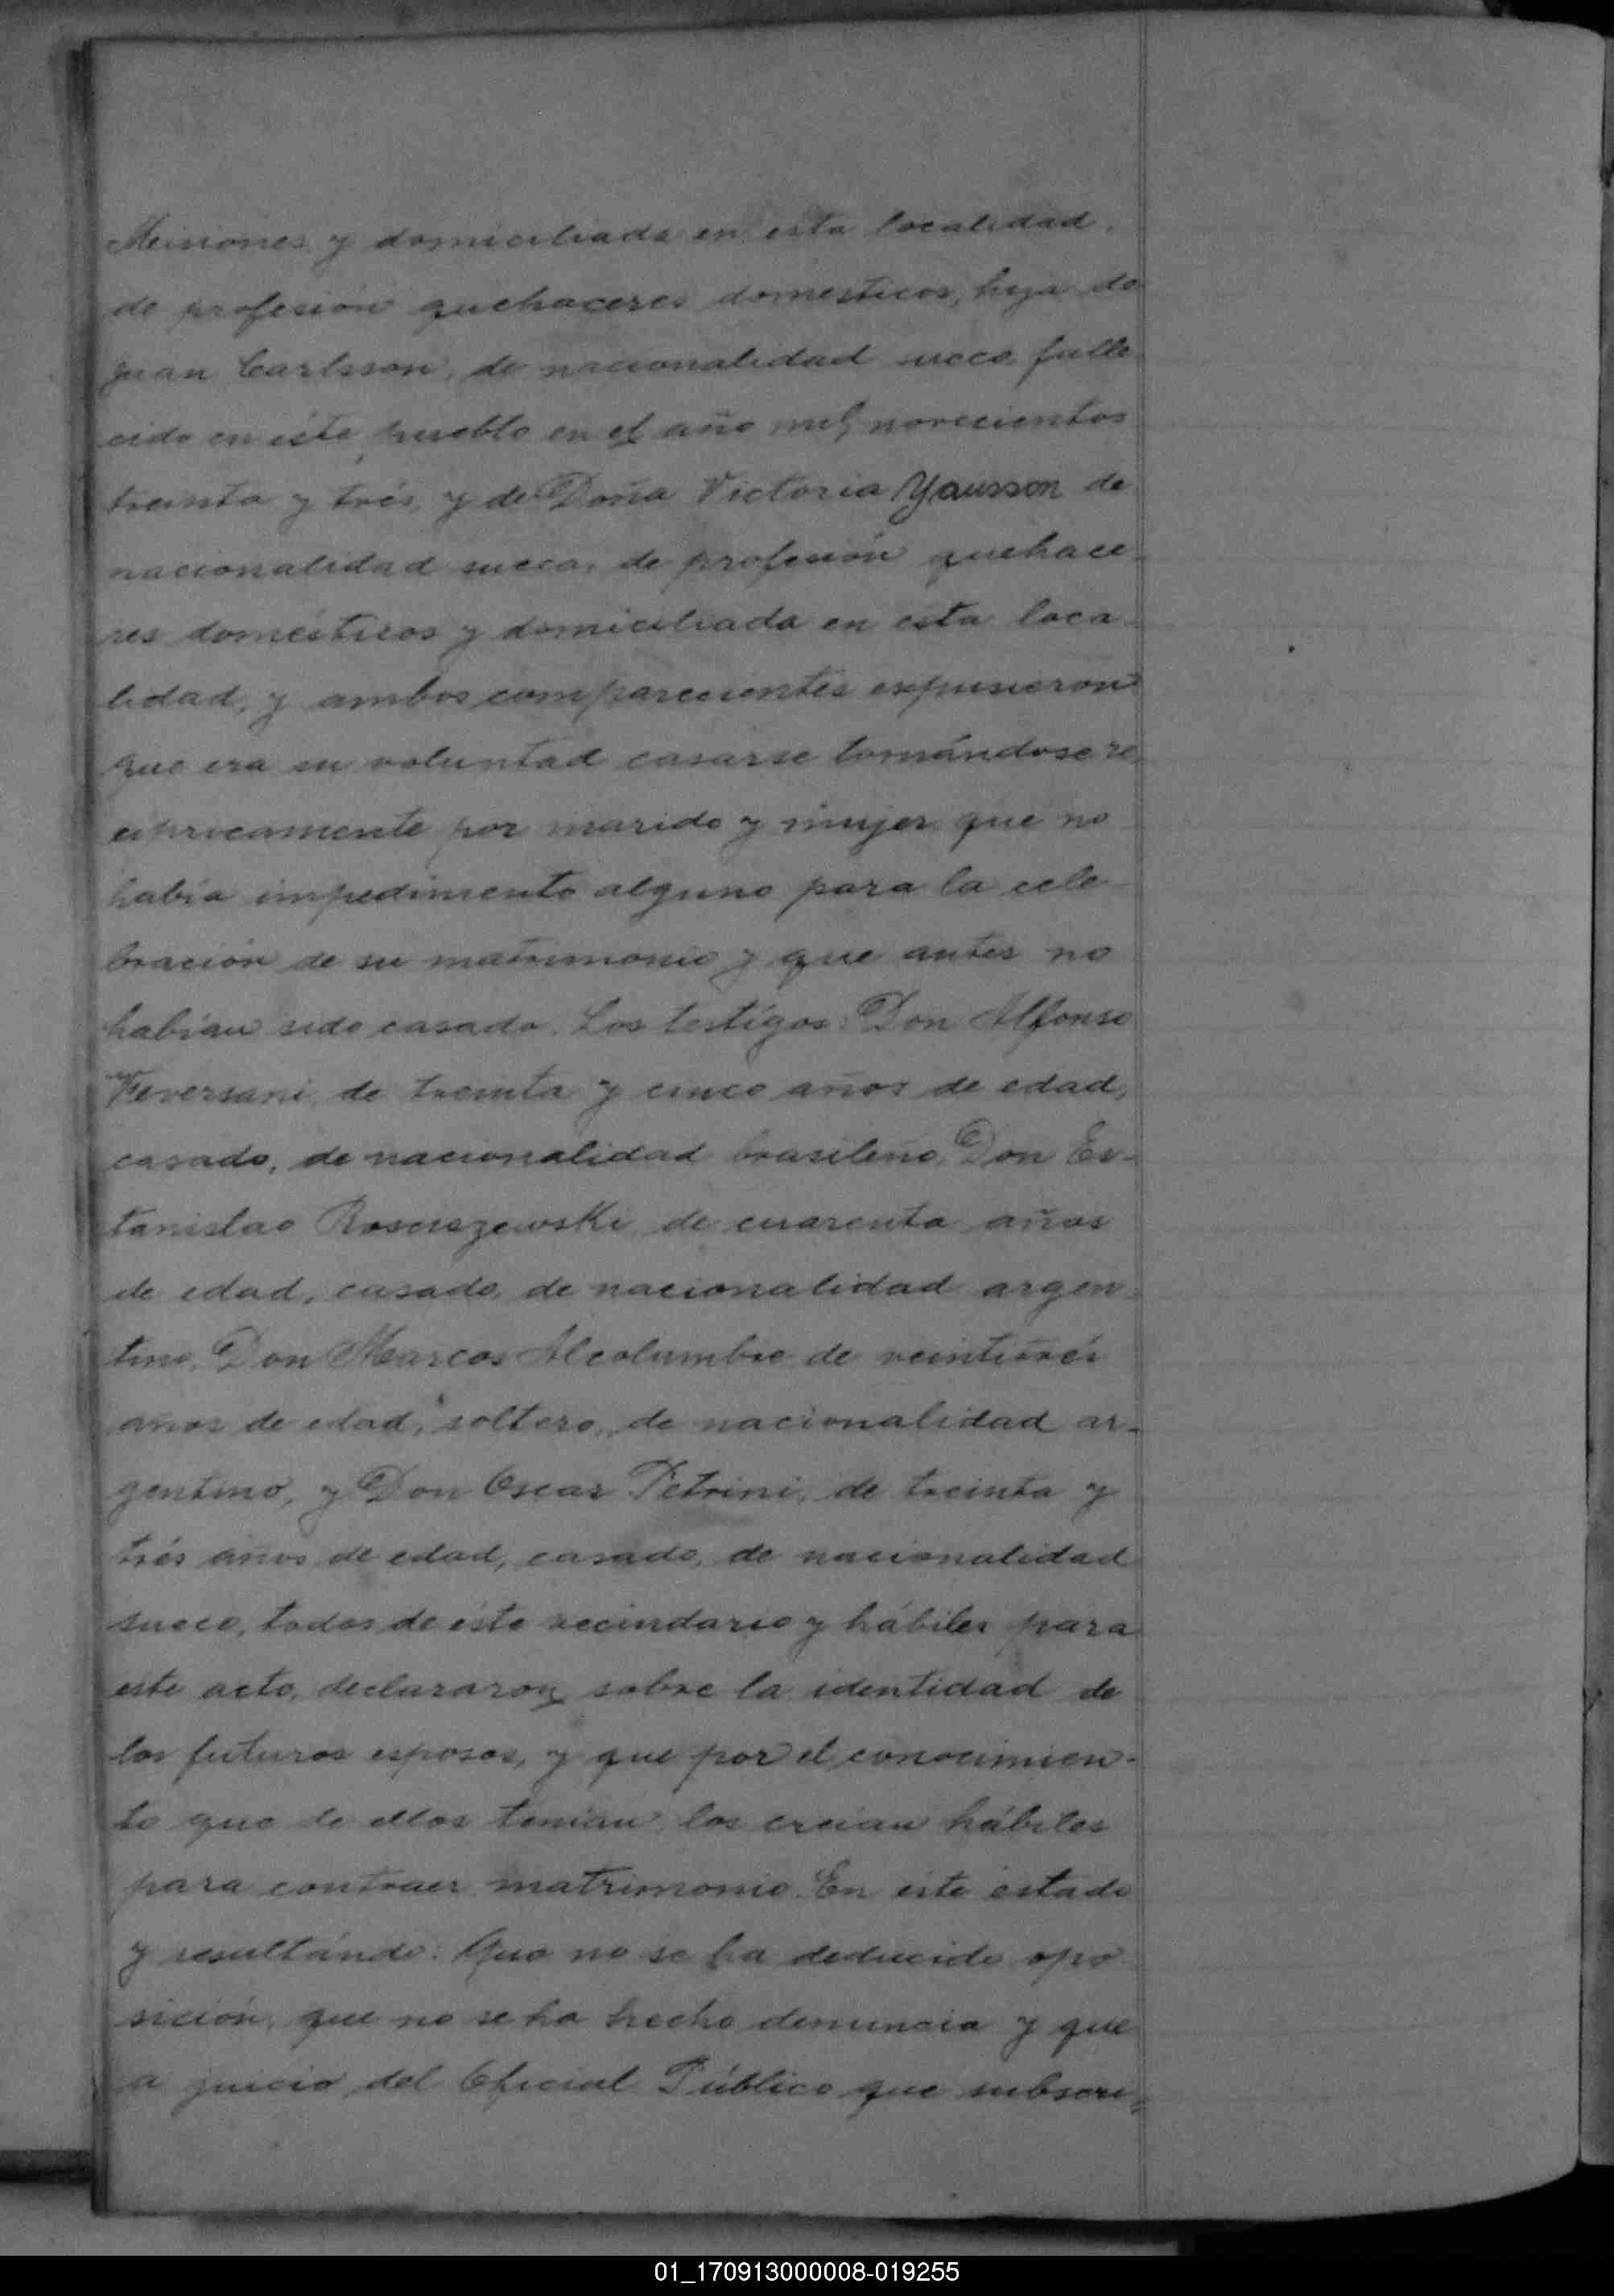 Misiones y domiciliada en esta localidad,
de profesión quehaceres domesticos, hija de
Juan Carlsson, de nacionalidad sueco falle-
cido en éste pueblo en el año mil novecientos
treinta y trés, y de Doña Victoria Yausson de
nacionalidad sueca, de profesión quehace-
res domésticos y domiciliada en esta loca-
lidad, y ambos comparecientes expusieron
que era su voluntad casarse tomándose re-
ciprocamente por marido y mujer que no
había impedimento alguno para la cele-
bración de su matrimonio y que antes no
habían sido casado. Los testigos: Don Alfonso
de treinta y cinco años de edad,
casado, de nacionalidad brasileño, Don Es-
tanislao Rosciszewski de cuarenta años
de edad, casado, de nacionalidad argen-
tino, Don Marcos Alcolumbre de veintitrés
años de edad, soltero, de nacionalidad ar-
gentino, y Don Oscar Petrini, de treinta y
trés años de edad, casado, de nacionalidad
sueco, todos de éste vecindario y hábiles para
este acto, declararon sobre la identidad de
los futuros esposos, y que por el conocimien-
to que de ellos tenían los creían hábiles
para contraer matrimonio. En éste estado
y resultándo: Que no se ha deducido opo
sición, que no se ha hecho denuncia y que
a juicio del Oficial Público que subscri-
01_170913000008-019255